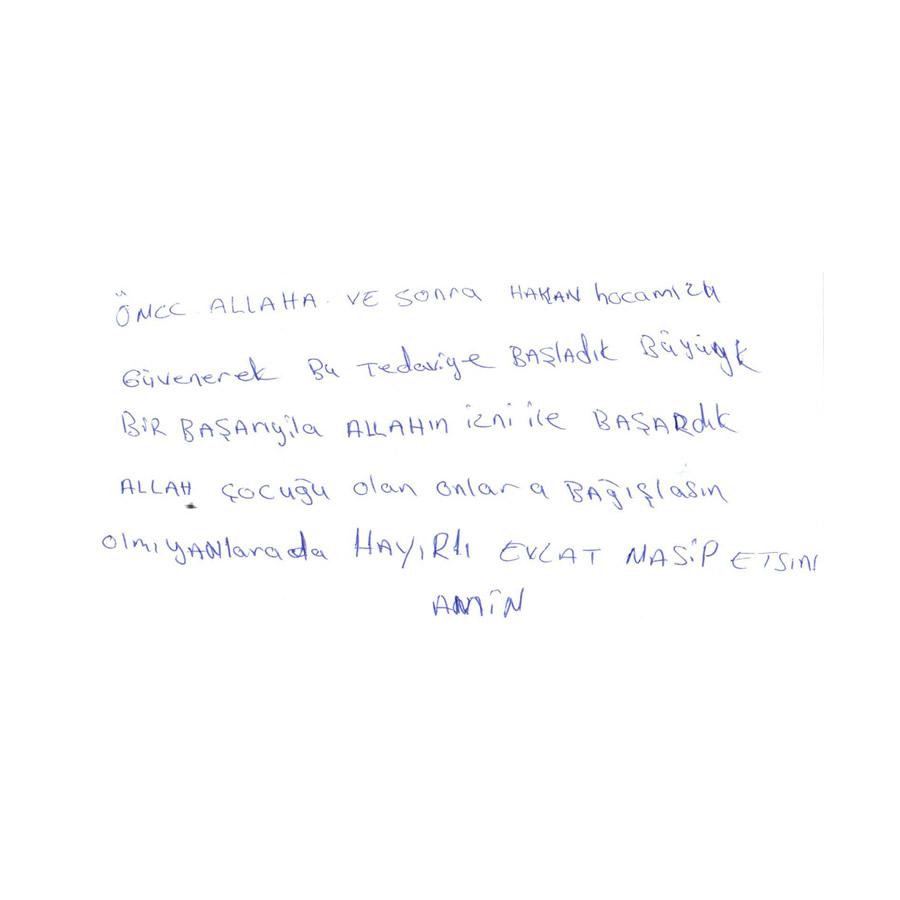 ÖNCE ALLAHA VE sonra HAKAN hocamıza
Güvenerek Bu Tedaviye BAŞladık Büyük
BiR BAŞArıyila ALLAHın izni ile BAŞARdık
ALLAH çocuğu olan onlara BAğışlasın
olmıYANlarada HAYıRlı EVLAT NASiP ETSiN
AMiN